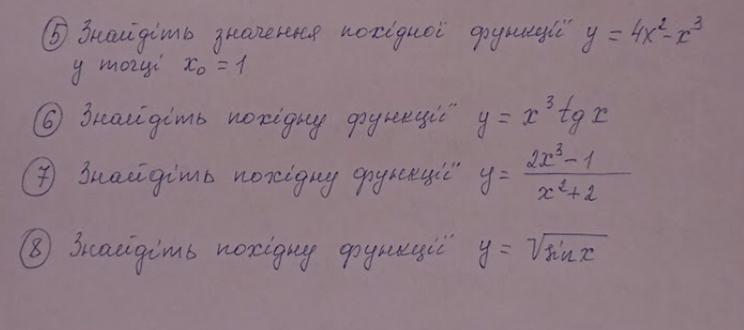 ⑤ Знайдіть значення похідної функції y = 4x² - x³
у точці x₀ = 1
⑥ Знайдіть похідну функції y = x³ tg x
⑦ Знайдіть похідну функції y = (2x³ - 1)/(x² + 2)
⑧ Знайдіть похідну функції y = √(sin x)